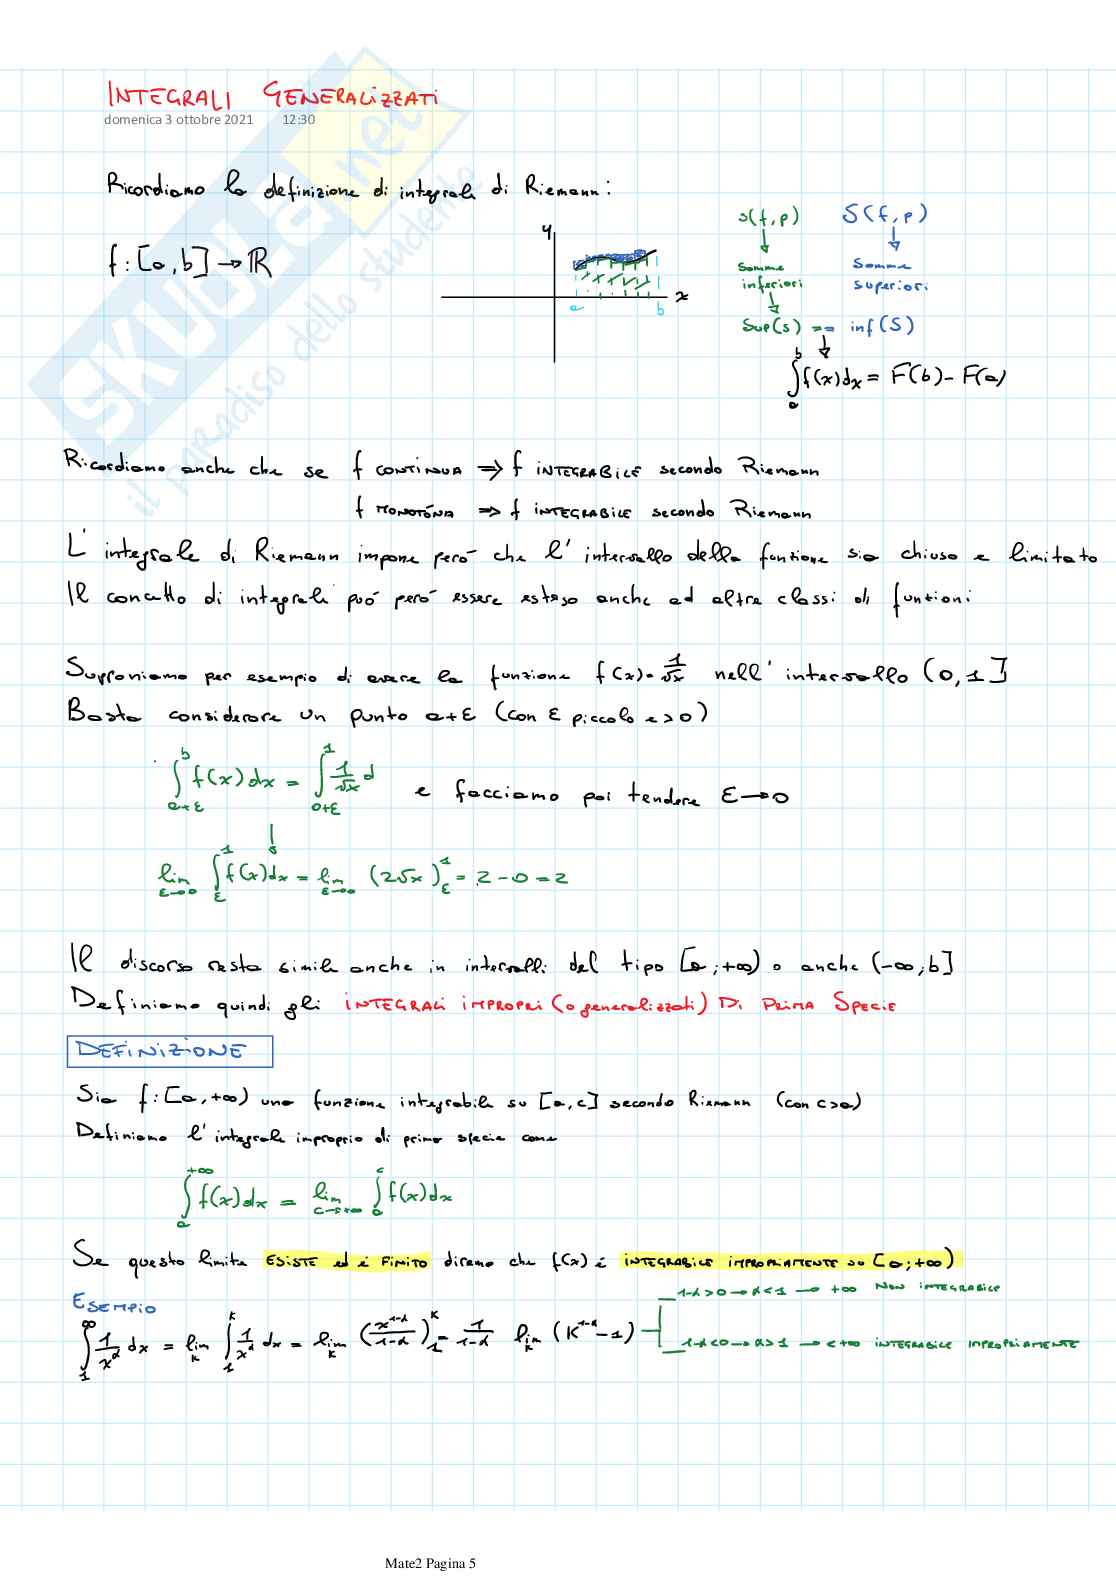 INTEGRALI GENERALIZZATI
domenica 3 ottobre 2021 12:30
Ricordiamo la definizione di integrale di Riemann:
f: [a,b] → ℝ
y
x
a b
s(f,p) S(f,p)
↓ ↓
somme somme
inferiori superiori
↓
sup(s) == inf(S)
↓
∫_a^b f(x)dx = F(b) - F(a)
Ricordiamo anche che se f CONTINUA ⇒ f INTEGRABILE secondo Riemann
f MONOTÓNA ⇒ f INTEGRABILE secondo Riemann
L'integrale di Riemann impone però che l'intervallo della funzione sia chiuso e limitato
Il concetto di integrale può però essere esteso anche ad altre classi di funzioni
Supponiamo per esempio di avere la funzione f(x)=1/√x nell'intervallo (0,1]
Basta considerare un punto a+ε (con ε piccolo e >0)
∫_{a+ε}^b f(x)dx = ∫_{0+ε}^1 1/√x d e facciamo poi tendere ε→0
↓
lim_{ε→0} ∫_ε^1 f(x)dx = lim_{ε→0} (2√x)_ε^1 = 2-0=2
Il discorso resta simile anche in intervalli del tipo [a;+∞) o anche (-∞;b]
Definiamo quindi gli INTEGRALI IMPROPRI (o generalizzati) DI PRIMA SPECIE
DEFINIZIONE
Sia f: [a,+∞) una funzione integrabile su [a,c] secondo Riemann (con c>a)
Definiamo l'integrale improprio di prima specie come
∫_a^{+∞} f(x)dx = lim_{c→+∞} ∫_a^c f(x)dx
Se questo limite ESISTE ed è FINITO diremo che f(x) è INTEGRABILE IMPROPRIAMENTE su [a;+∞)
ESEMPIO
1-α>0→α<1 → +∞ NON INTEGRABILE
∫_1^∞ 1/x^α dx = lim_k ∫_1^k 1/x^α dx = lim_k (x^{1-α}/(1-α))_1^k = 1/(1-α) lim_k (k^{1-α}-1)
1-α<0→α>1 → <+∞ INTEGRABILE IMPROPRIAMENTE
Mate2 Pagina 5
SKUOLA.net
il paradiso dello studente